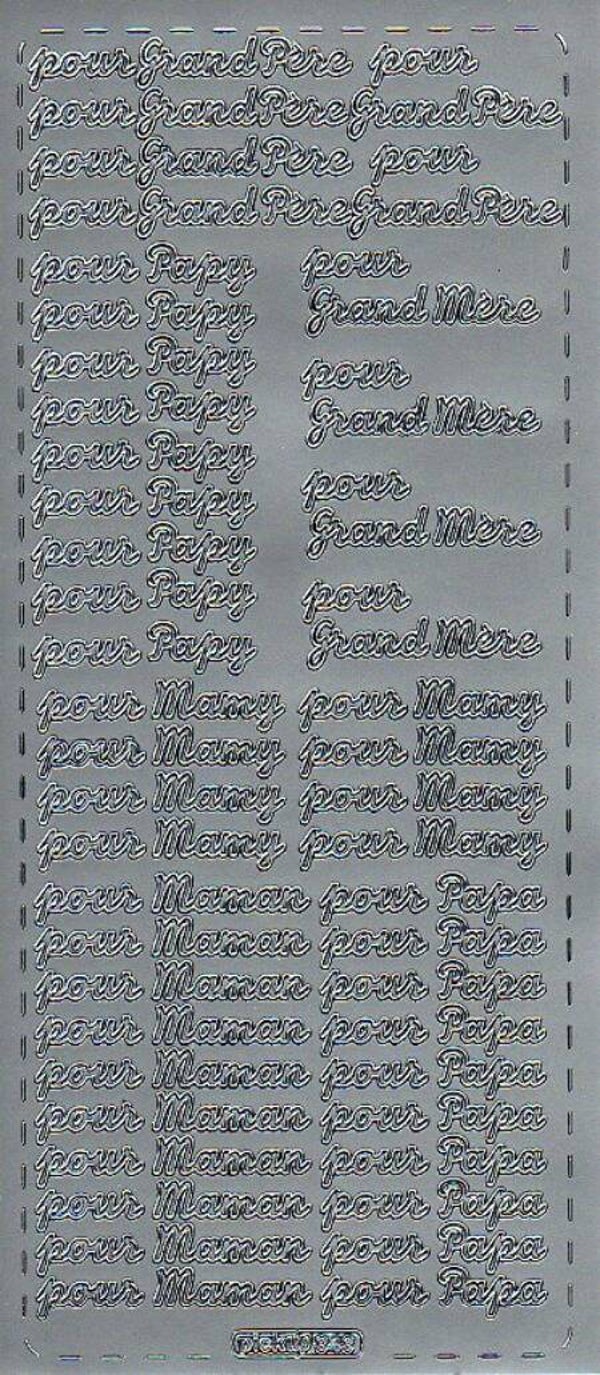 pour Grand Père pour
pour Grand Père Grand Père
pour Grand Père pour
pour Grand Père Grand Père
pour Papy pour
pour Papy Grand Mère
pour Papy pour
pour Papy Grand Mère
pour Papy
pour Papy pour
pour Papy Grand Mère
pour Papy pour
pour Papy Grand Mère
pour Mamy pour Mamy
pour Mamy pour Mamy
pour Mamy pour Mamy
pour Mamy pour Mamy
pour Maman pour Papa
pour Maman pour Papa
pour Maman pour Papa
pour Maman pour Papa
pour Maman pour Papa
pour Maman pour Papa
pour Maman pour Papa
pour Maman pour Papa
pour Maman pour Papa
pour Maman pour Papa